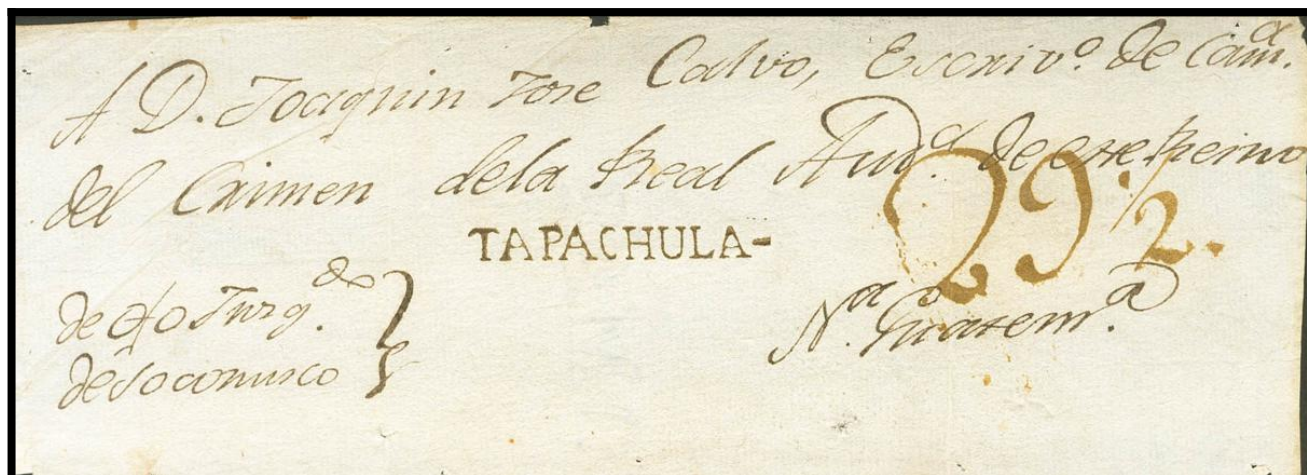 A D. Joaquin Jose Calvo, Escriv.º de Cam.ª
del Crimen dela Real Aud.ª de este Reino
TAPACHULA-
29 1/2.
de Juzg.do
de Soconusco
N.ª Guatem.ª